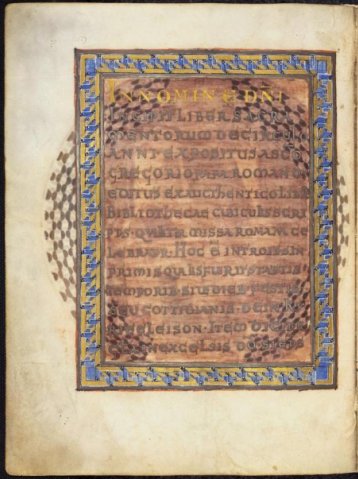 IN NOMINE DNI
INCIPIT LIBER SACRA
MENTORUM DE CIRCULO
ANNI EXPOSITUS A SCO
GREGORIO PAPA ROMANO
EDITUS EX AUCTHENTICO LIB
BIBLIOTHECAE CUBICULI SCRI
PTUS QUALITER MISSA ROMANA CE
LEBRATUR HOC Ē INTROITUS IN
PRIMIS QUALIS FUERIT STATUTIS
TEMPORIB SIUE DIEB FESTIS
SEU COTTIDIANIS DEINDE
ELEISON ITEM
IN EXCELSIS DO SI EPS